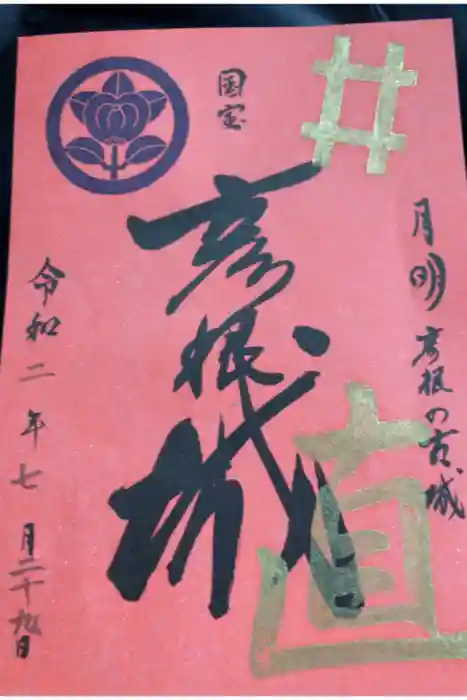 月明彦根の古城
国宝
彦根城
直
令和二年七月二十九日